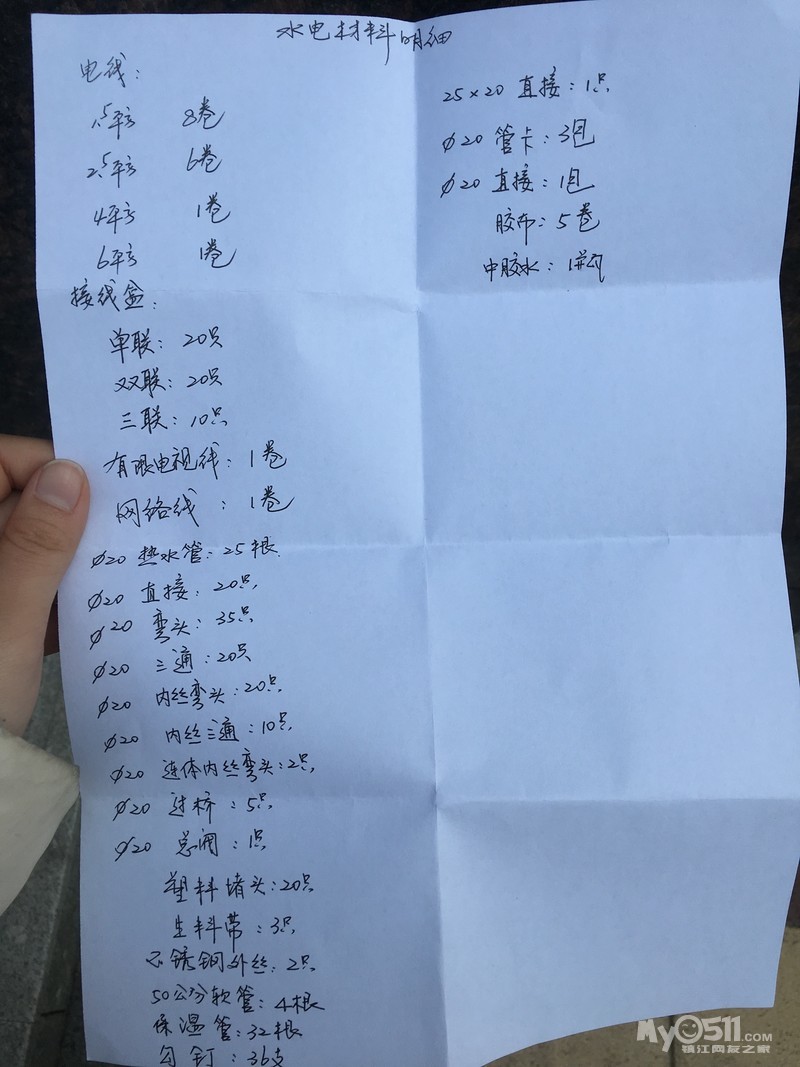 水电材料明细
电线：
1.5平方 8卷
2.5平方 6卷
4平方 1卷
6平方 1卷
接线盒：
单联：20只
双联：20只
三联：10只
有限电视线：1卷
网络线：1卷
φ20 热水管：25根
φ20 直接：20只
φ20 弯头：35只
φ20 三通：20只
φ20 内丝弯头：20只
φ20 内丝三通：10只
φ20 连体内丝弯头：2只
φ20 过桥：5只
φ20 总阀：1只
塑料堵头：20只
生料带：3只
不锈钢外丝：2只
50公分软管：4根
保温管：32根
勾钉：36支
25×20 直接：1只
φ20 管卡：3包
φ20 直接：1包
胶布：5卷
中胶水：1并
My0511.COM
镇江网友之家